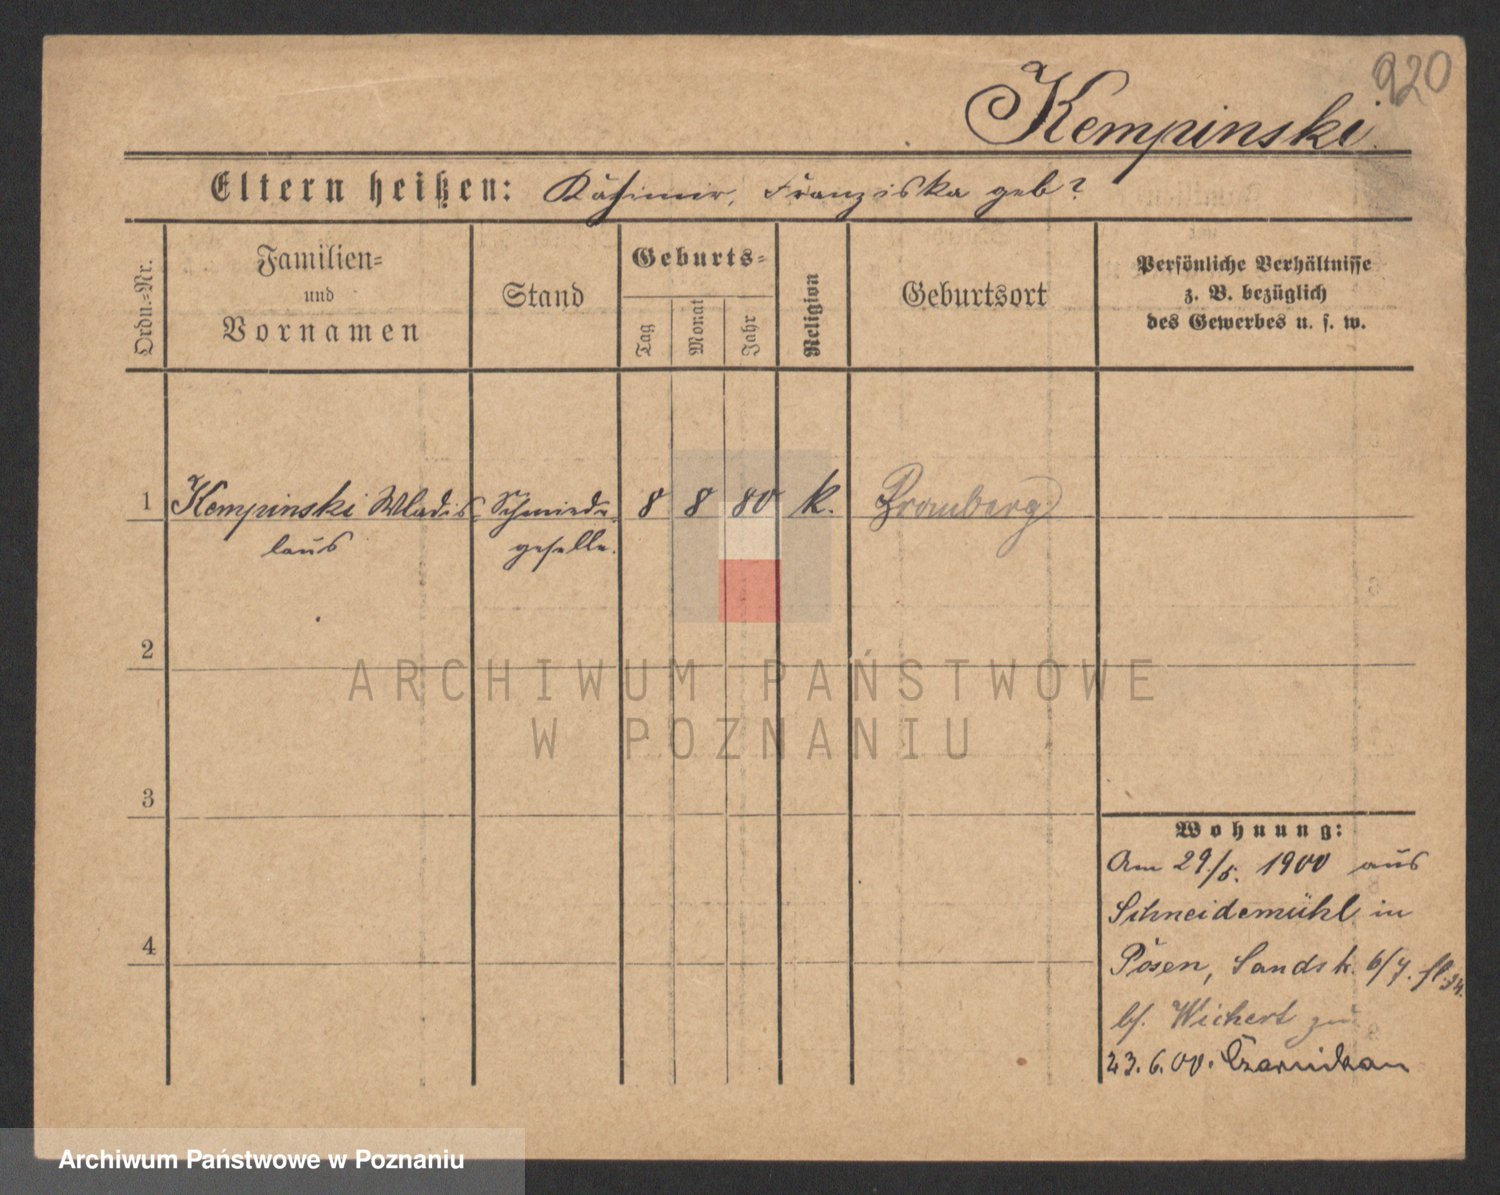 920
Kempinski
Eltern heißen: Kasimir, Franziska geb?
Ordn.=Nr.
Familien=
und
Vornamen
Stand
Geburts=
Tag
Monat
Jahr
Religion
Geburtsort
Persönliche Verhältnisse
z. B. bezüglich
des Gewerbes u. s. w.
1 Kempinski Wladis Schmiede 8 8 80 k. Bromberg
laus geselle.
2
ARCHIWUM PAŃSTWOWE
W POZNANIU
3
4
Wohnung:
Am 29/5. 1900 aus
Schneidemühl in
Posen, Sandstr. 6/7.
b/. Wichert
23.6.00. Czarnikau
Archiwum Państwowe w Poznaniu